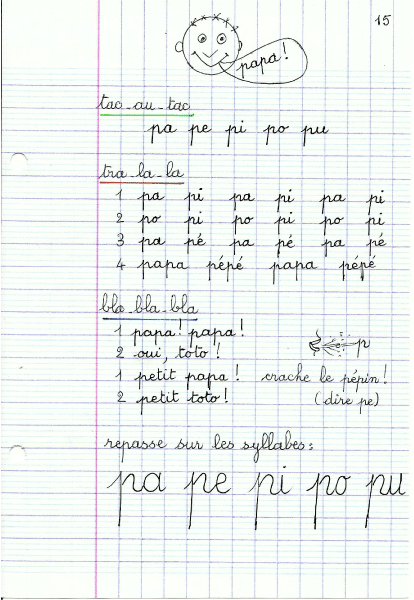 15
papa!
tac-au-tac
pa pe pi po pu
tra-la-la
1 pa pi pa pi pa pi
2 po pi po pi po pi
3 pa pé pa pé pa pé
4 papa pépé papa pépé
bla-bla-bla
1 papa! papa!
2 oui, toto!
p
1 petit papa! crache le pépin!
2 petit toto! (dire pe)
repasse sur les syllabes:
pa pe pi po pu